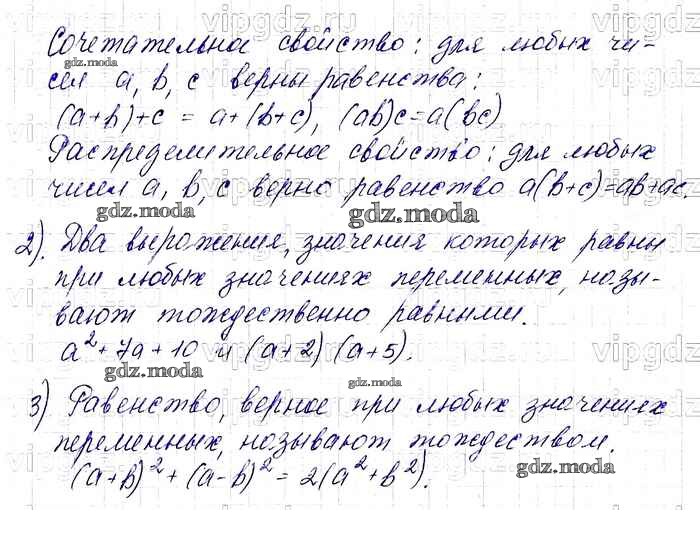 Сочетательное свойство: для любых чи-
сел a, b, c верны равенства:
(a+b)+c = a+(b+c), (ab)c=a(bc)
Распределительное свойство: для любых
чисел a, b, c верно равенство a(b+c)=ab+ac.
2). Два выражения, значения которых равны
при любых значениях переменных, назы-
вают тождественно равными.
a²+7a+10 и (a+2)(a+5).
3) Равенство, верное при любых значениях
переменных, называют тождеством.
(a+b)²+(a-b)²=2(a²+b²).
gdz.moda
gdz.moda
gdz.moda
gdz.moda
gdz.moda
gdz.moda
vipgdz.ru